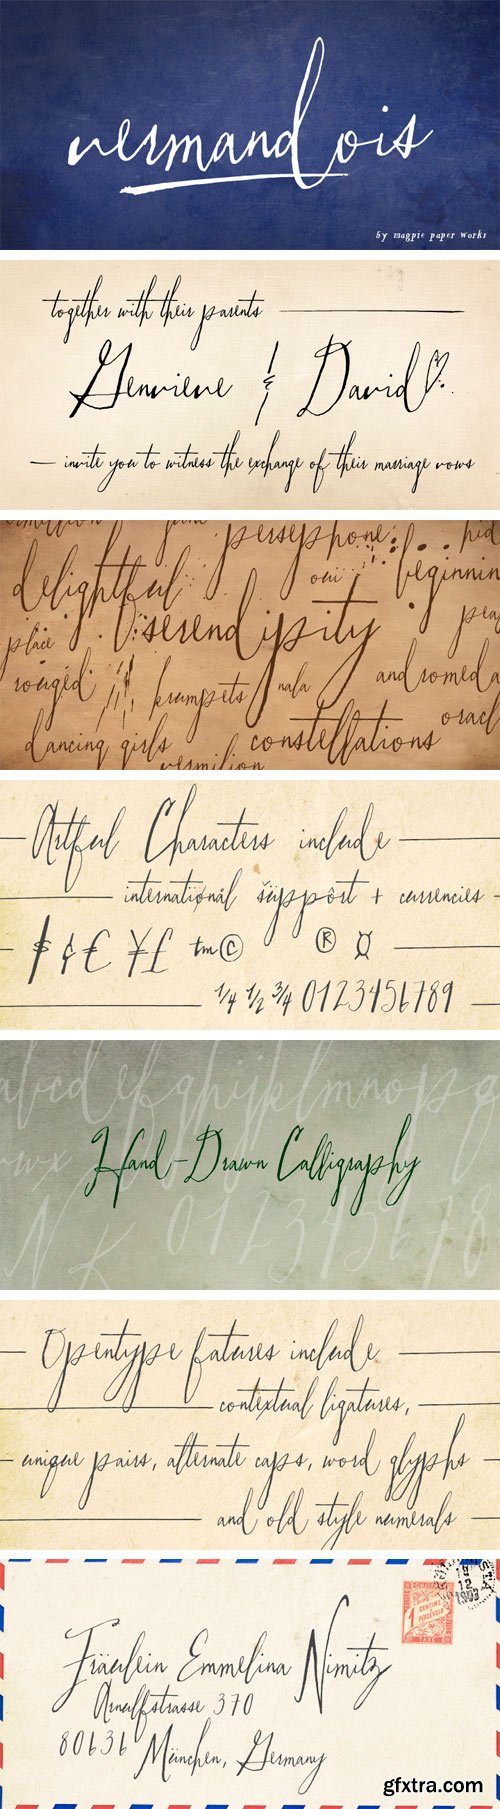 vermandois
by magpie paper works
together with their parents
Genvieve & David
invite you to witness the exchange of their marriage vows
persephone
delightful
oui
beginnin
serendipity
place
rouged
krumpets
nala
andromeda
oracl
dancing girls
constellations
vermilion
Artful Characters include
internatiønål šüppôrt + currencies
$ ¢ € ¥ £ ™ © ® ¤
1/4 1/2 3/4 0123456789
abcdefghijklmnopq
Hand-Drawn Calligraphy
N K 012345678
Opentype fatures include
contextual ligatures,
unique pairs, alternate caps, word glyphs
and old style numerals
Fräulein Emmelina Nimitz
Arnulfstrasse 370
80636 München, Germany
1
CENTIME
A PERCEVOIR
TAXE
gfxtra.com